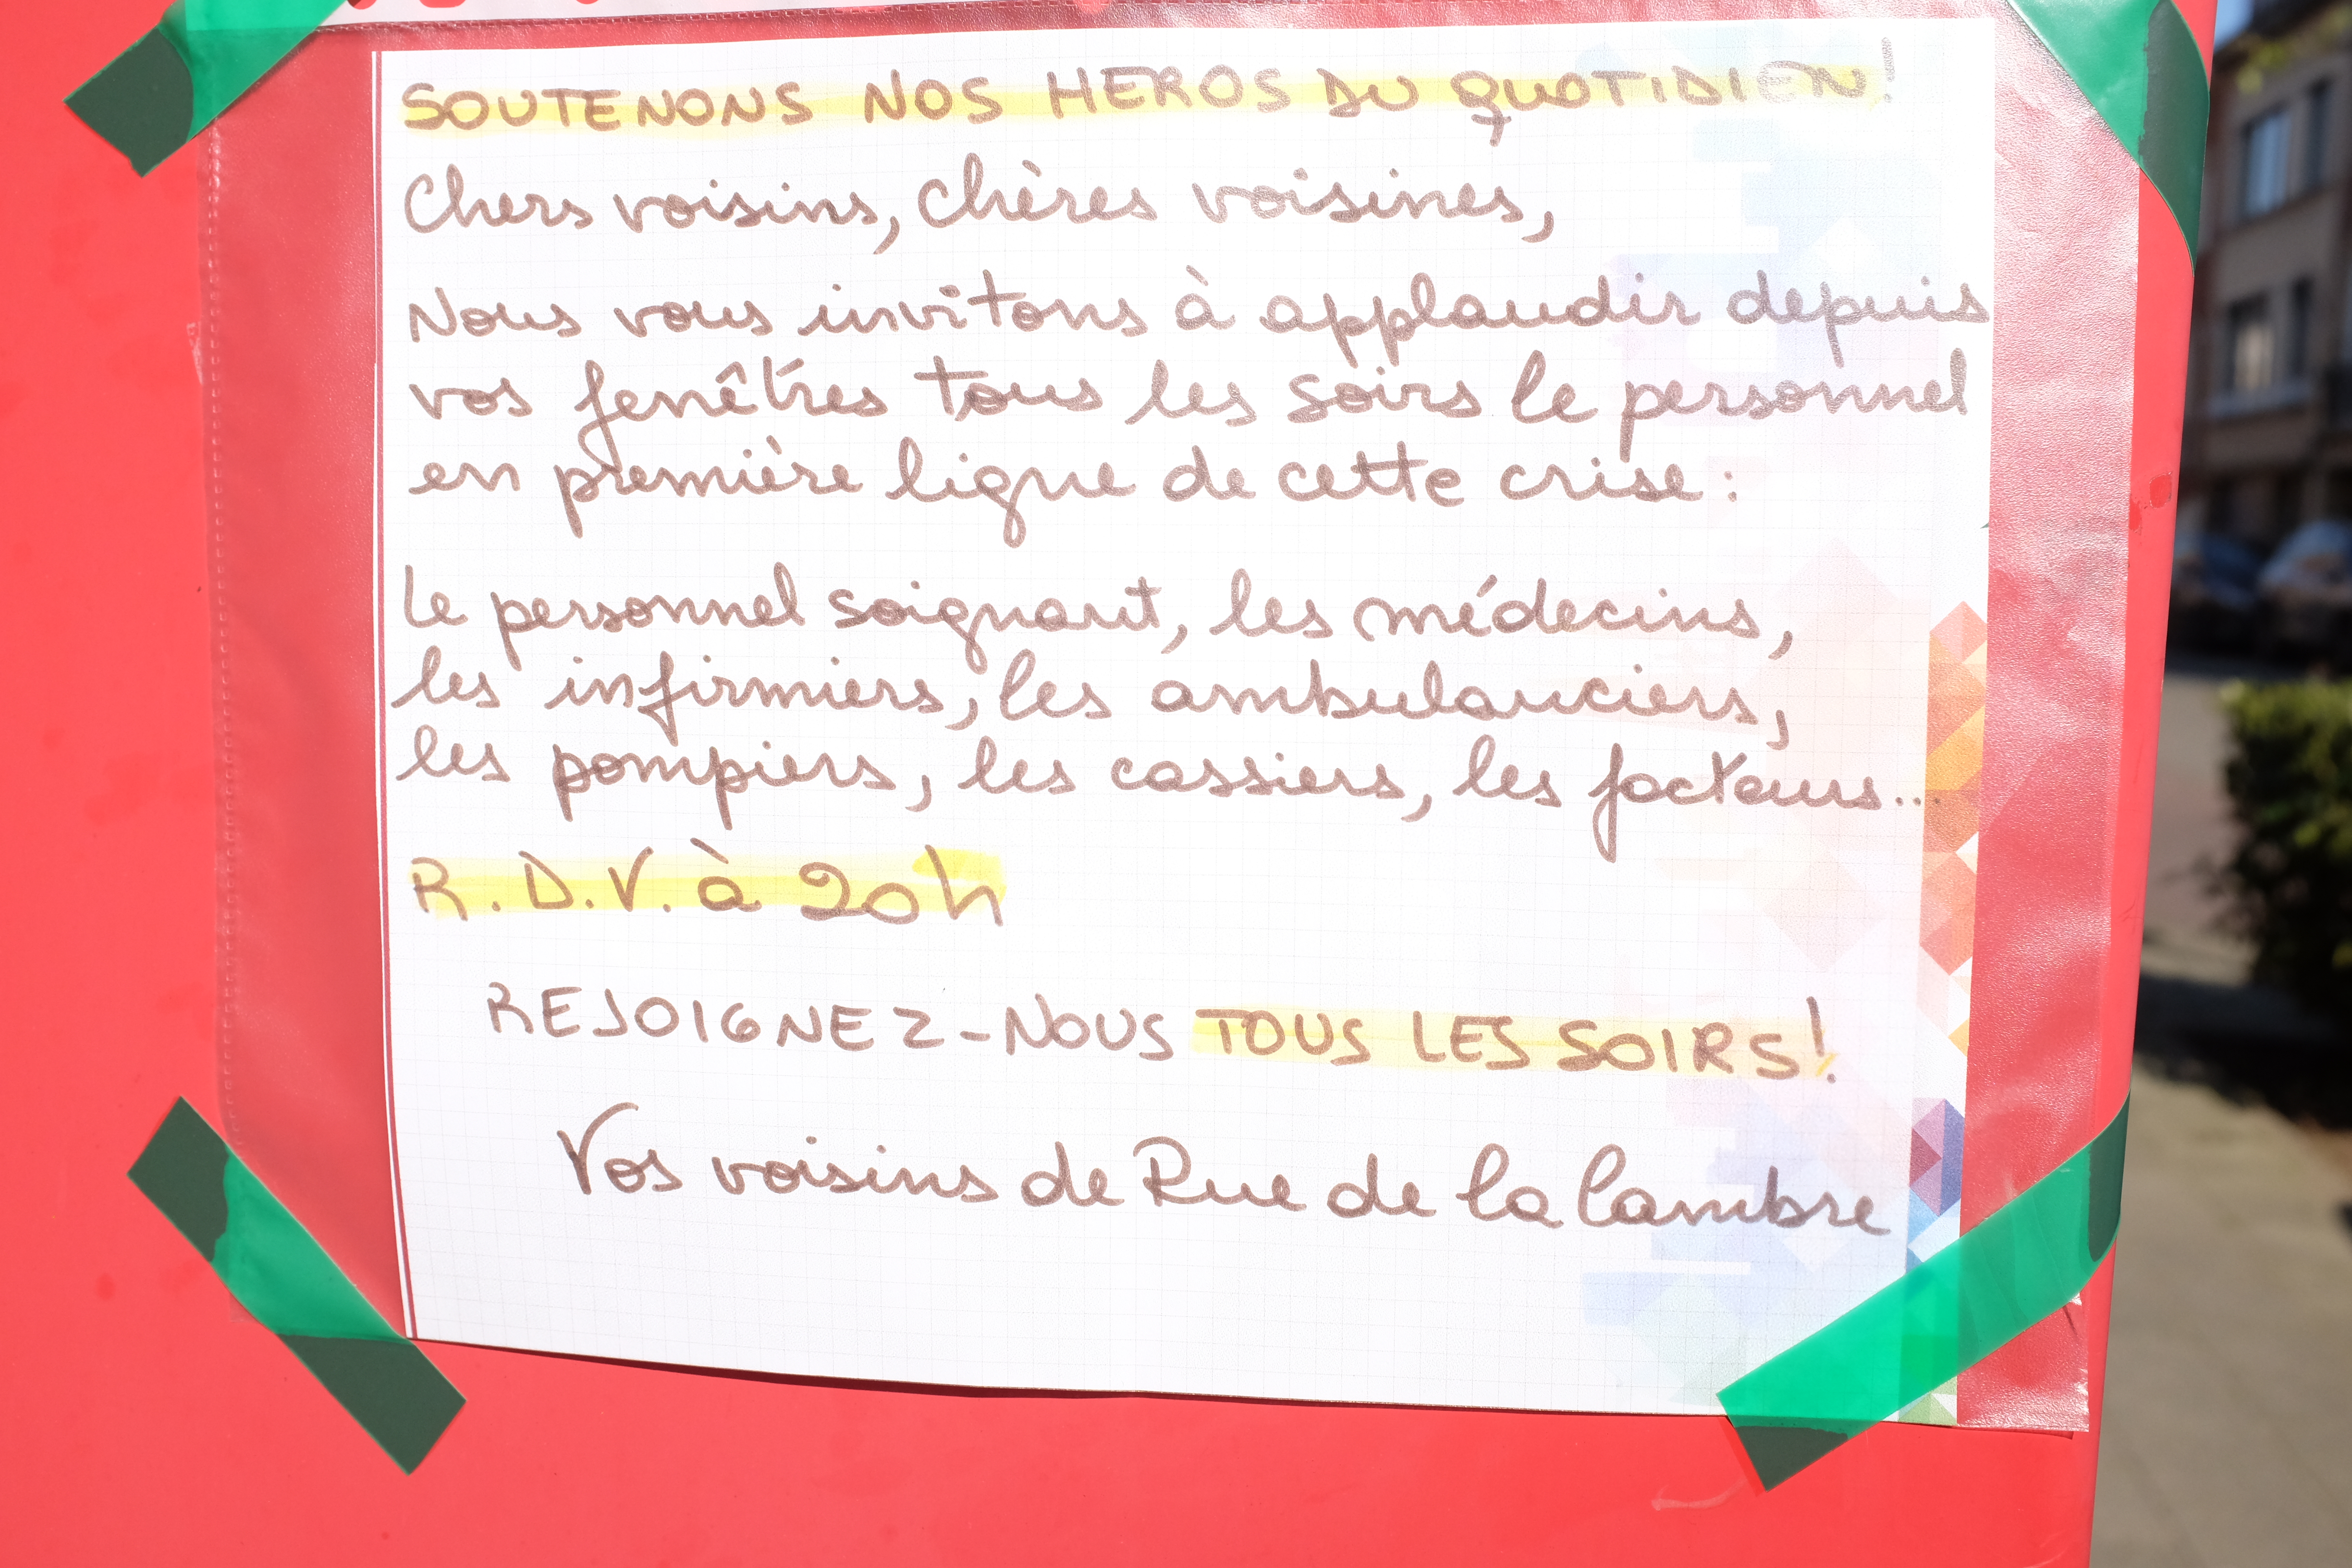 SOUTENONS NOS HEROS DU QUOTIDIEN!
Chers voisins, chères voisines,
Nous vous invitons à applaudir depuis
vos fenêtres tous les soirs le personnel
en première ligne de cette crise :
Le personnel soignant, les médecins,
les infirmiers, les ambulanciers,
les pompiers, les cassiers, les facteurs...
R.D.V. à 20h
REJOIGNEZ-NOUS TOUS LES SOIRS!
Vos voisins de Rue de la Cambre